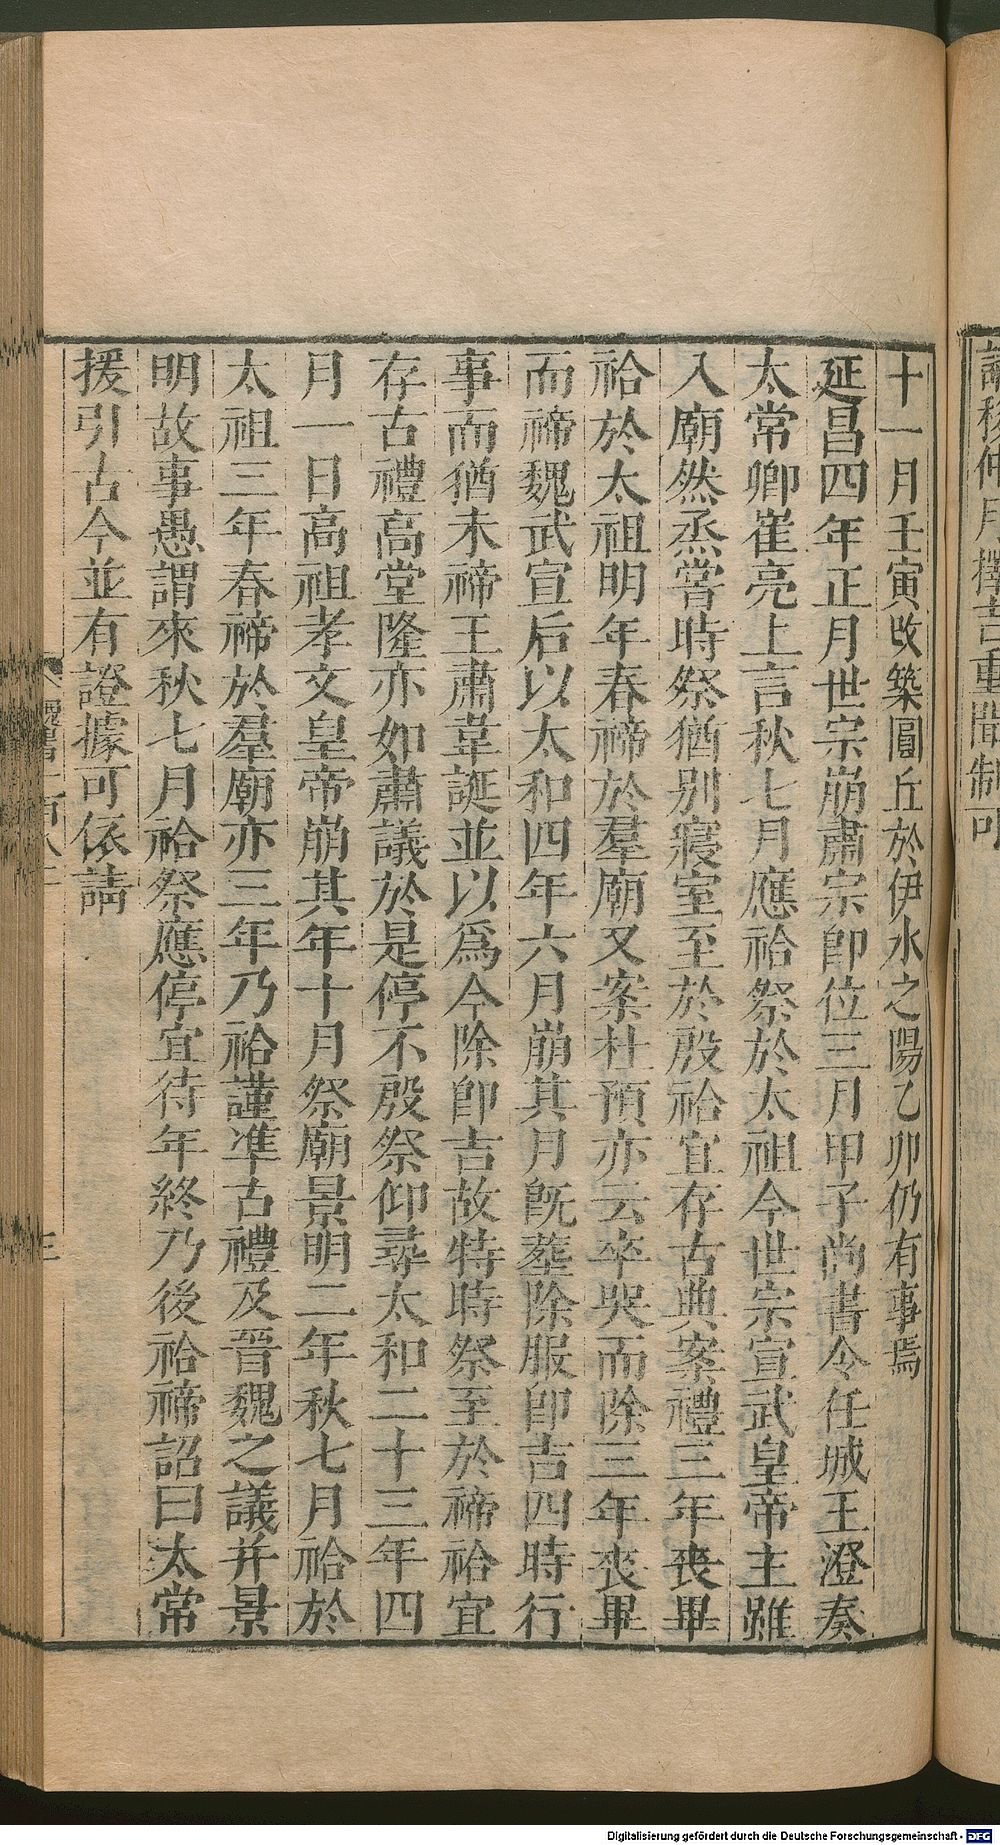 十一月壬寅改築圓丘於伊水之陽乙卯仍有事焉
延昌四年正月世宗崩肅宗卽位三月甲子尚書令任城王澄奏
太常卿崔亮上言秋七月應祫祭於太祖今世宗宣武皇帝主雖
入廟然烝嘗時祭猶別寢室至於殷祫宜存古典案禮三年喪畢
祫於太祖明年春禘於羣廟又案杜預亦云卒哭而除三年喪畢
而禘魏武宣后以太和四年六月崩其月旣葬除服卽吉四時行
事而猶未禘王肅韋誕並以爲今除卽吉故特時祭至於禘祫宜
存古禮高堂隆亦如肅議於是停不殷祭仰尋太和二十三年四
月一日高祖孝文皇帝崩其年十月祭廟景明二年秋七月祫於
太祖三年春禘於羣廟亦三年乃祫謹準古禮及晉魏之議并景
明故事愚謂來秋七月祫祭應停宜待年終乃後祫禘詔曰太常
援引古今並有證據可依請
三
Digitalisierung gefördert durch die Deutsche Forschungsgemeinschaft - DFG